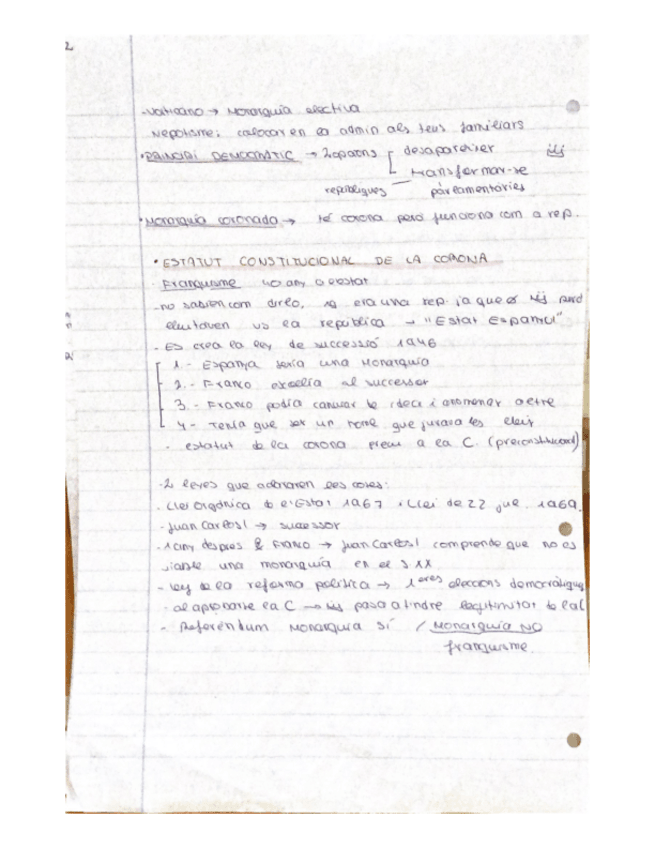 2
-Vaticano → Monarquia electiva
Nepotisme: colocar en la admin als teus familiars
•PRINCIPI DEMOCRATIC → 2 opcions desaparèixer
transformar-se
repúbliques parlamentàries
•Monarquia coronada → té corona però funciona com a rep.
• ESTATUT CONSTITUCIONAL DE LA CORONA
- Franquisme 40 any
-no sabien com dirlo, no era una rep. ja que
la república → "Estat Espanyol"
- Es crea la ley de successió 1946
1.- Espanya seria una Monarquia
2.- Franco escollia al successor
3.- Franco podia canviar de idea i anomenar a etre
4- Tenia que ser un home que jurava les lleis
- estatut de la corona previ a la C. (preconstitucional)
-2 leyes que les coses:
- Llei Orgànica de l'Estat 1967 i Llei de 22 jul. 1969.
- Juan Carlos I → successor
-1 any despres Franco → Juan Carlos I comprende que no es
viable una monarquía en el S XX
- Ley de la reforma política → 1eres eleccions democràtiques
- al aprobarse la C → passa a tindre legitimitat de la C
- Referéndum Monarquia Sí / Monarquia NO
franquisme.